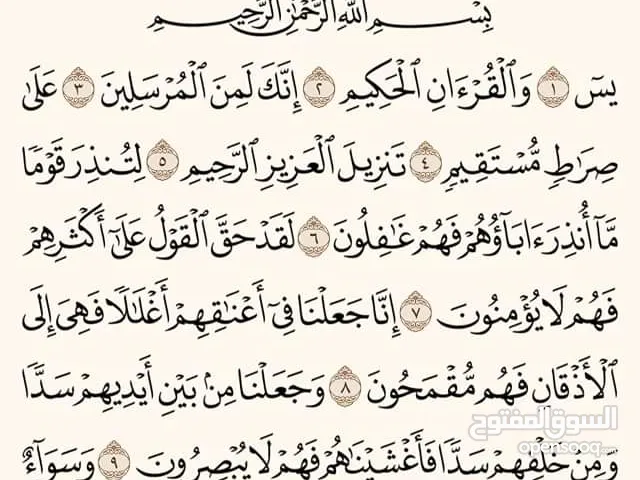 بِسْمِ ٱللَّهِ ٱلرَّحْمَٰنِ ٱلرَّحِيمِ
يسٓ ١ وَٱلْقُرْءَانِ ٱلْحَكِيمِ ٢ إِنَّكَ لَمِنَ ٱلْمُرْسَلِينَ ٣ عَلَىٰ
صِرَٰطٍ مُّسْتَقِيمٍ ٤ تَنزِيلَ ٱلْعَزِيزِ ٱلرَّحِيمِ ٥ لِتُنذِرَ قَوْمًا
مَّآ أُنذِرَ ءَابَآؤُهُمْ فَهُمْ غَٰفِلُونَ ٦ لَقَدْ حَقَّ ٱلْقَوْلُ عَلَىٰٓ أَكْثَرِهِمْ
فَهُمْ لَا يُؤْمِنُونَ ٧ إِنَّا جَعَلْنَا فِىٓ أَعْنَٰقِهِمْ أَغْلَٰلًا فَهِىَ إِلَى
ٱلْأَذْقَانِ فَهُم مُّقْمَحُونَ ٨ وَجَعَلْنَا مِنۢ بَيْنِ أَيْدِيهِمْ سَدًّا
وَمِنْ خَلْفِهِمْ سَدًّا فَأَغْشَيْنَٰهُمْ فَهُمْ لَا يُبْصِرُونَ ٩ وَسَوَآءٌ
السوق المفتوح
opensooq.com